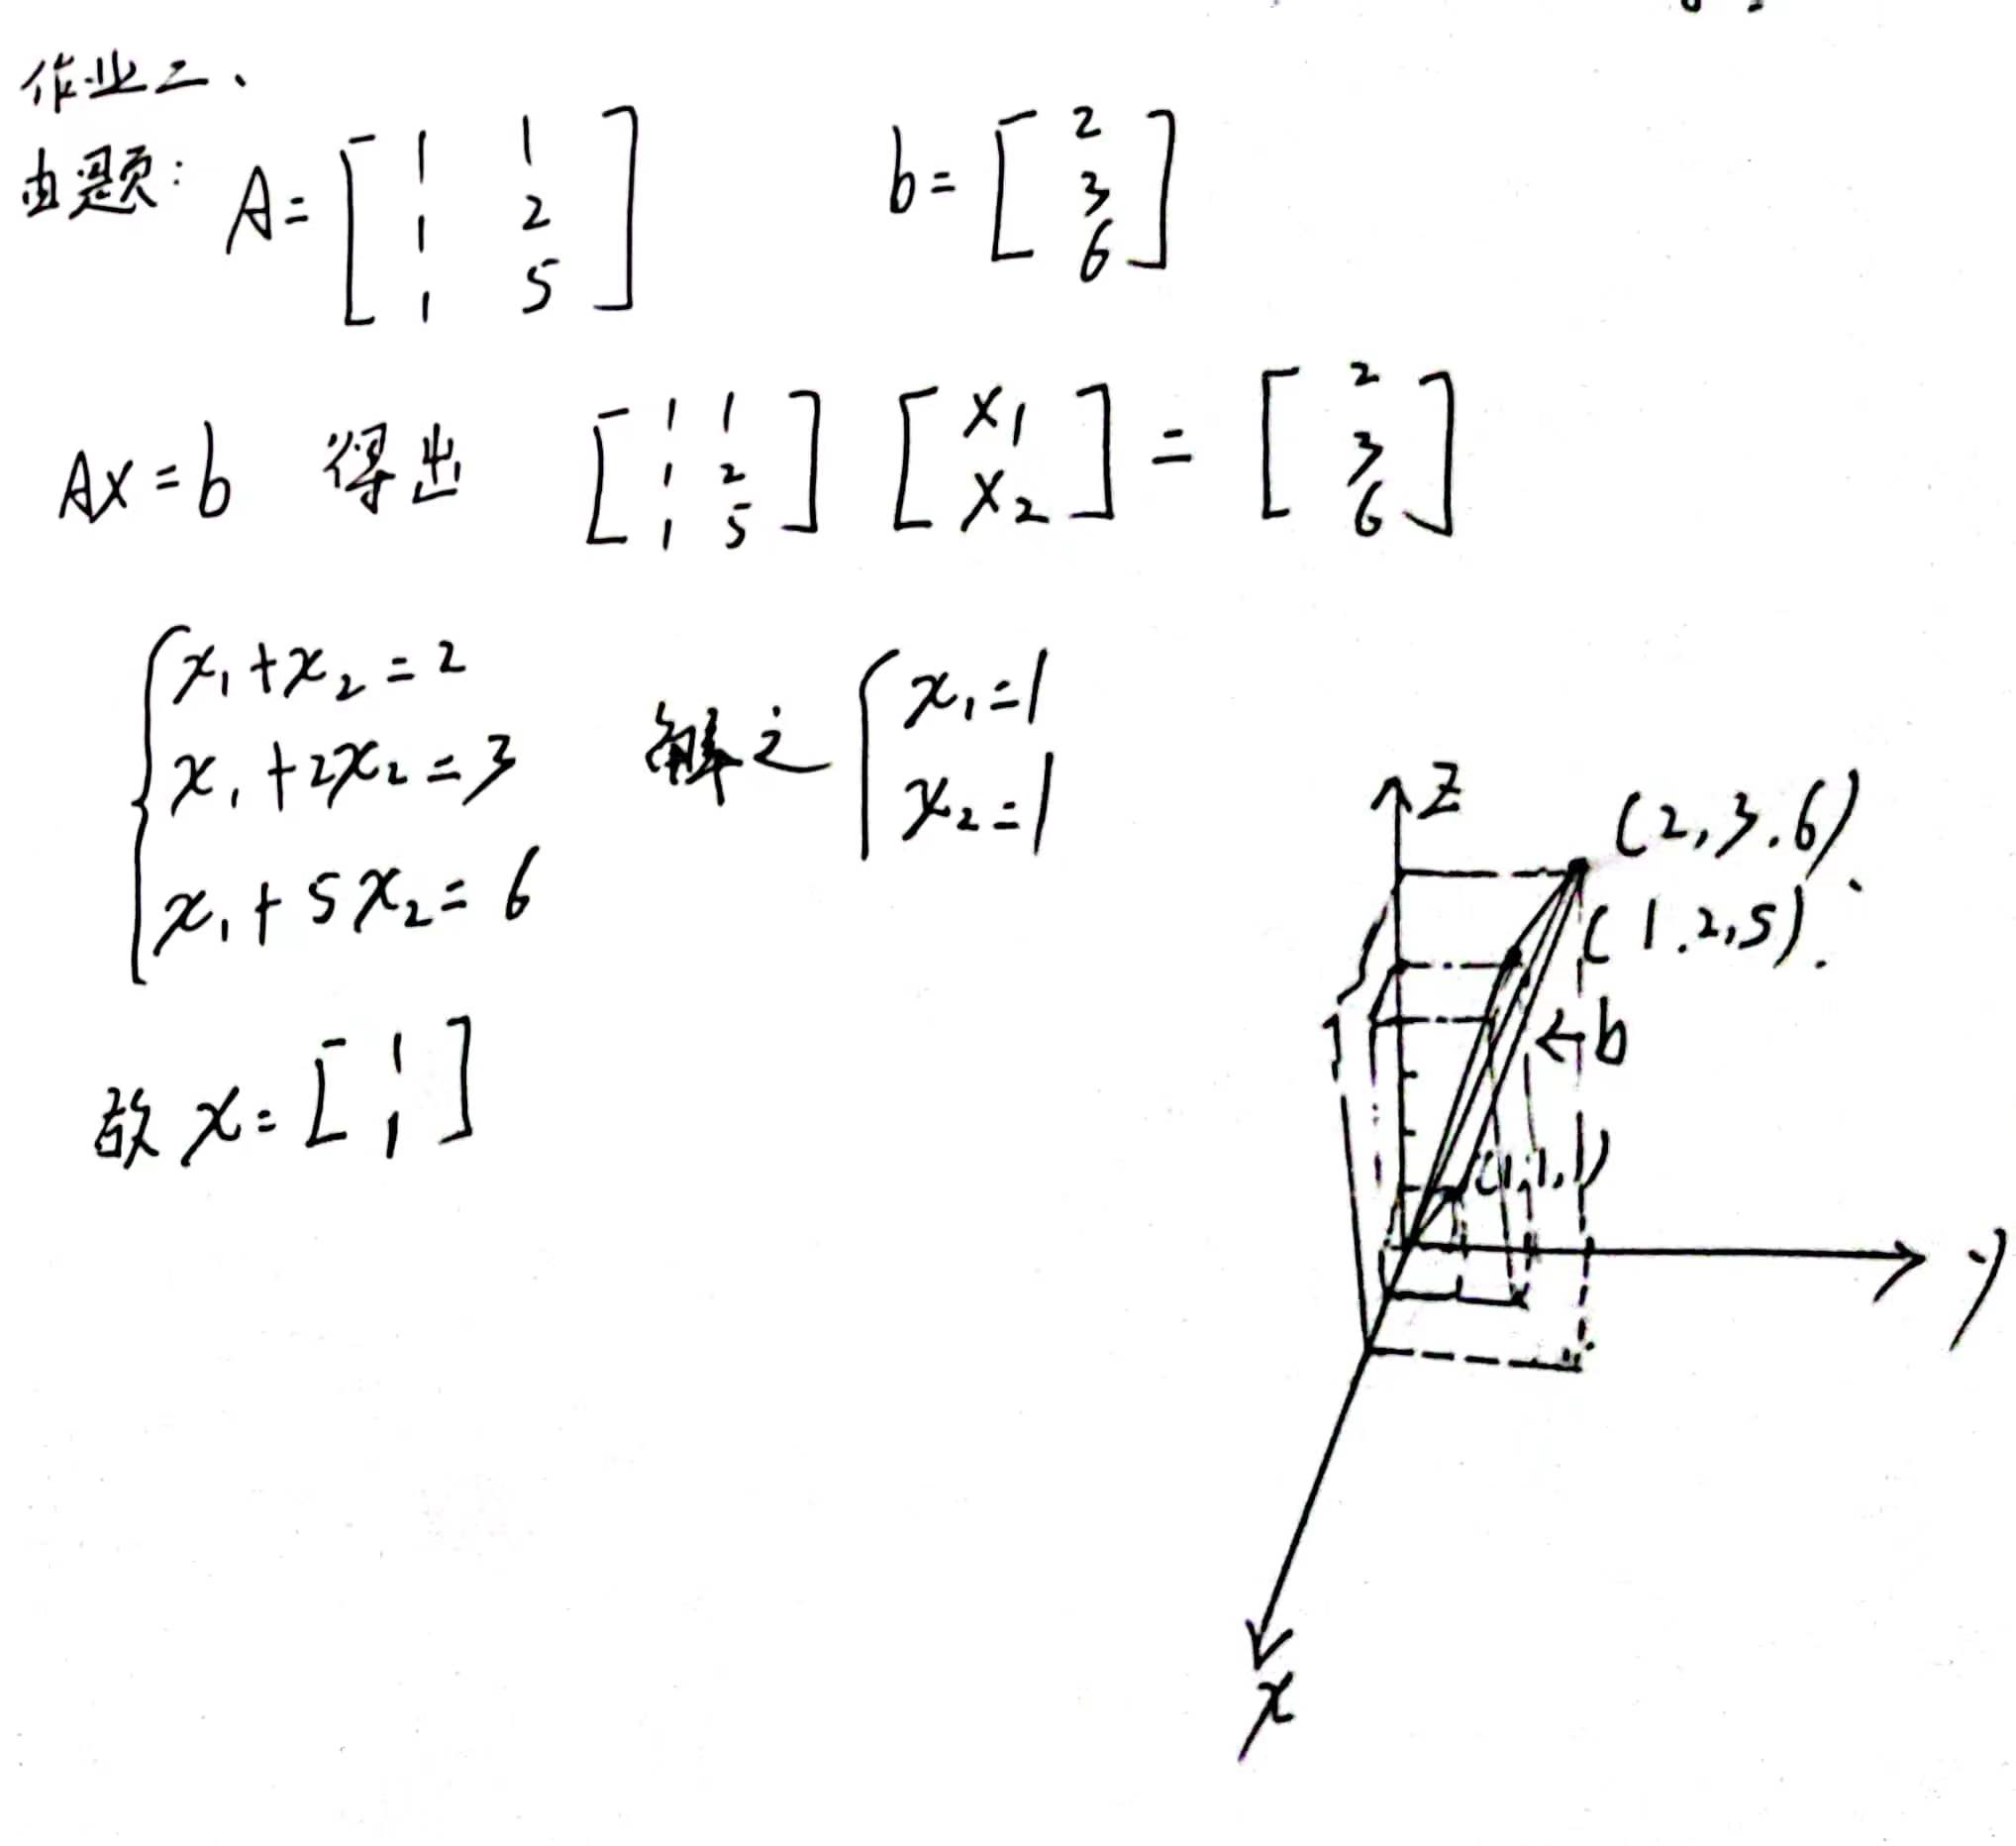 作业二、
由题: A = [ 1 1 ; 1 2 ; 1 5 ] b = [ 2 ; 3 ; 6 ]
Ax = b 得出 [ 1 1 ; 1 2 ; 1 5 ] [ x1 ; x2 ] = [ 2 ; 3 ; 6 ]
{ x₁ + x₂ = 2
x₁ + 2x₂ = 3
x₁ + 5x₂ = 6
解之 { x₁ = 1
x₂ = 1
故 x = [ 1 ; 1 ]
z
(2,3.6).
(1.2,5).
←b
(1,1,1)
y
x